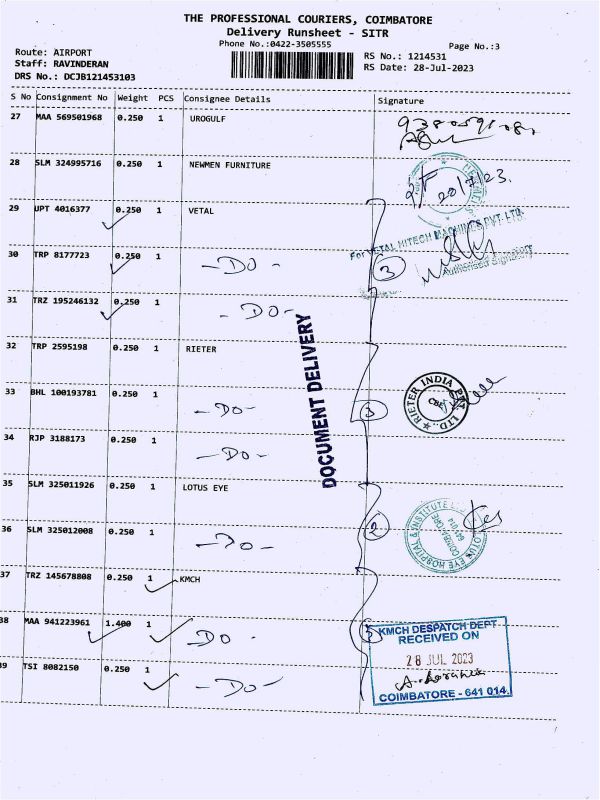 THE PROFESSIONAL COURIERS, COIMBATORE
Delivery Runsheet - SITR
Phone No.:0422-3505555
Page No.:3
Route: AIRPORT
Staff: RAVINDERAN
DRS No.: DCJB121453103
RS No.: 1214531
RS Date: 28-Jul-2023
S No Consignment No Weight PCS Consignee Details Signature
27 MAA 569501968 0.250 1 UROGULF
28 SLM 324995716 0.250 1 NEWMEN FURNITURE
29 UPT 4016377 0.250 1 VETAL
For VETAL HITECH MACHINES PVT. LTD.
30 TRP 8177723 0.250 1 -DO- 3
Authorised Signatory
31 TRZ 195246132 0.250 1 -DO-
DOCUMENT DELIVERY
32 TRP 2595198 0.250 1 RIETER
RIETER INDIA PVT. LTD.,
CBE
33 BHL 100193781 0.250 1 -DO- 3
34 RJP 3188173 0.250 1 -DO-
35 SLM 325011926 0.250 1 LOTUS EYE
LOTUS EYE HOSPITAL & INSTITUTE
COIMBATORE
641 014
2
36 SLM 325012008 0.250 1 -DO-
37 TRZ 145678808 0.250 1 KMCH
38 MAA 941223961 1.400 1 DO
KMCH DESPATCH DEPT
RECEIVED ON
28 JUL 2023
COIMBATORE - 641 014.
39 TSI 8082150 0.250 1 -DO-